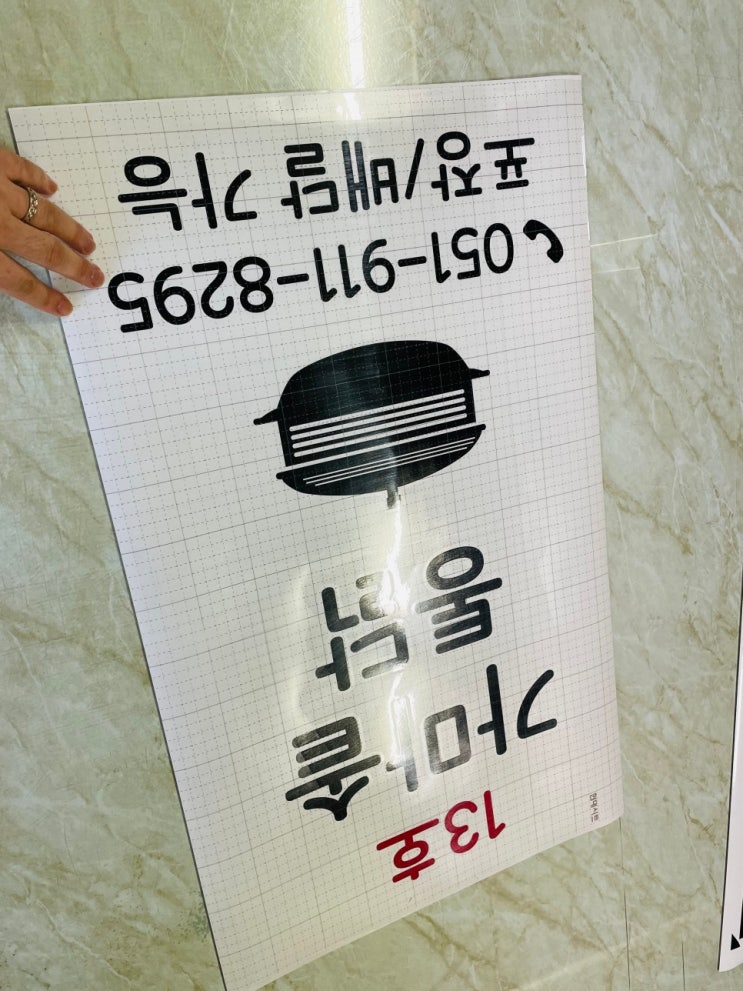 13호
가마솥
통닭
051-911-8295
포장/배달 가능